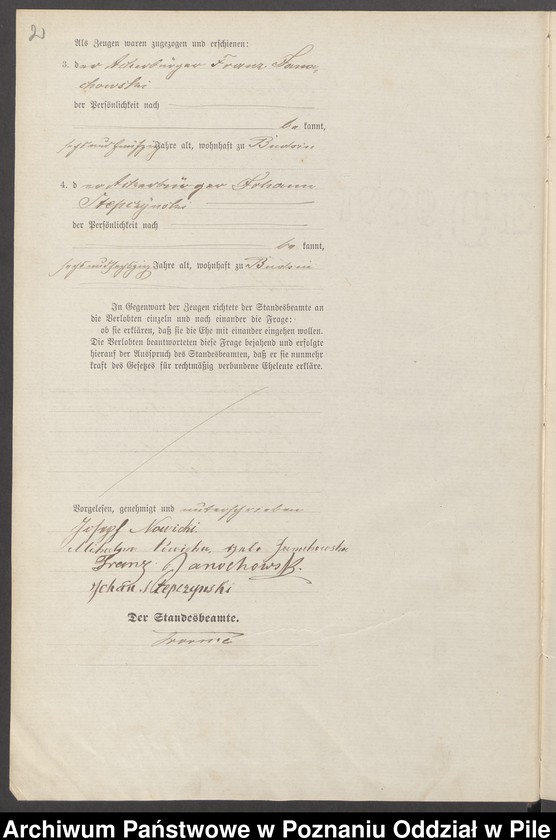 2
Als Zeugen waren zugezogen und erschienen:
3. der Ackerbürger Franz Jano,
chowski
der Persönlichkeit nach
be kannt,
sechsundfünfzig Jahre alt, wohnhaft zu Budsin
4. der Ackerbürger Johann
Stepczynski
der Persönlichkeit nach
be kannt,
sechsundsechzig Jahre alt, wohnhaft zu Budsin
In Gegenwart der Zeugen richtete der Standesbeamte an
die Verlobten einzeln und nach einander die Frage:
ob sie erklären, daß sie die Ehe mit einander eingehen wollen.
Die Verlobten beantworteten diese Frage bejahend und erfolgte
hierauf der Ausspruch des Standesbeamten, daß er sie nunmehr
kraft des Gesetzes für rechtmäßig verbundene Eheleute erkläre.
Vorgelesen, genehmigt und unterschrieben
Josef Nowicki
Franz Janochowski.
Johan Stepczynski
Der Standesbeamte.
Archiwum Państwowe w Poznaniu Oddział w Pile